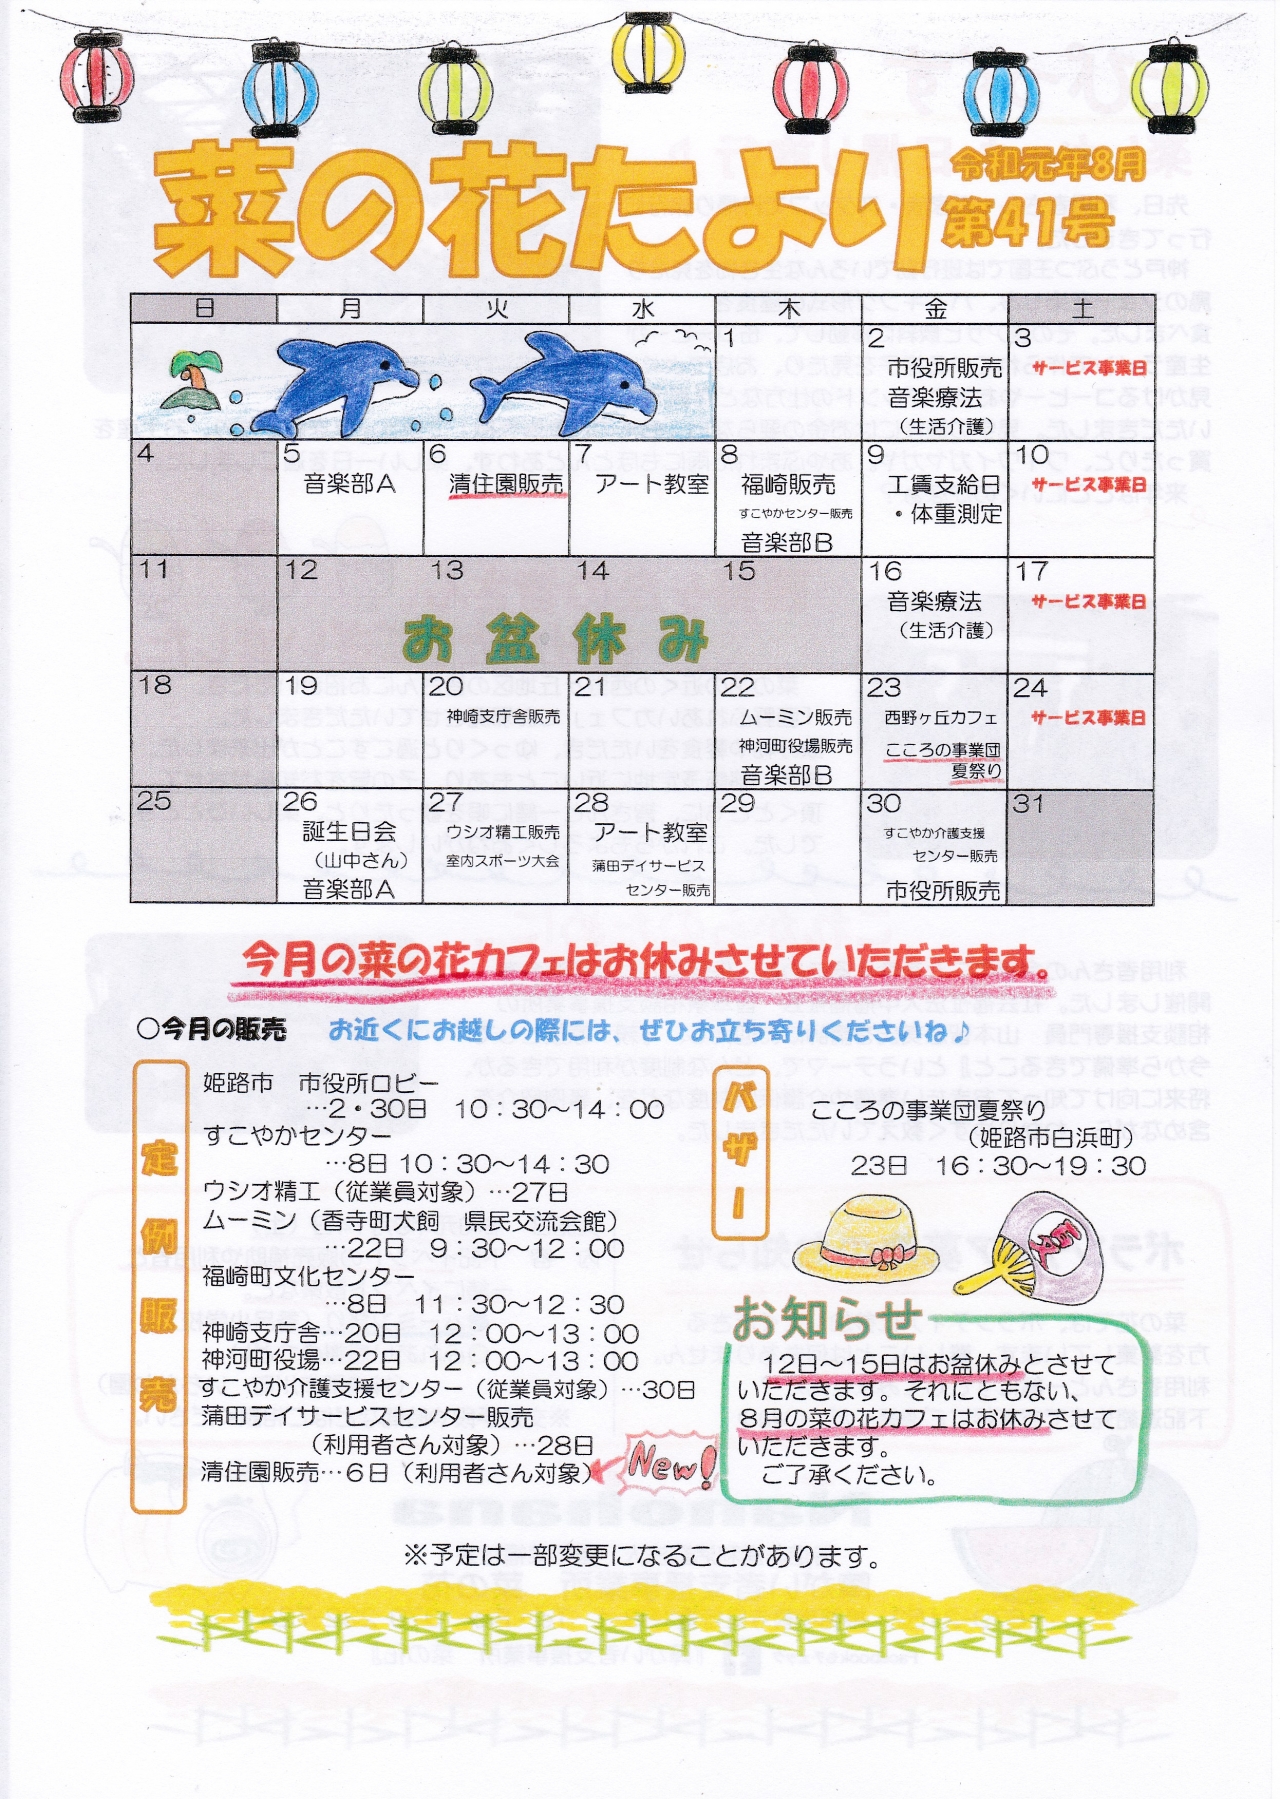 菜の花たより
令和元年8月
第41号
日 月 火 水 木 金 土
1
2
市役所販売
音楽療法
（生活介護）
3
サービス事業日
4
5
音楽部A
6
清住園販売
7
アート教室
8
福崎販売
すこやかセンター販売
音楽部B
9
工賃支給日
・体重測定
10
サービス事業日
11
12
13
14
15
お盆休み
16
音楽療法
（生活介護）
17
サービス事業日
18
19
20
神崎支庁舎販売
21
22
ムーミン販売
神河町役場販売
音楽部B
23
西野ヶ丘カフェ
こころの事業団
夏祭り
24
サービス事業日
25
26
誕生日会
（山中さん）
音楽部A
27
ウシオ精工販売
室内スポーツ大会
28
アート教室
蒲田デイサービス
センター販売
29
30
すこやか介護支援
センター販売
市役所販売
31
今月の菜の花カフェはお休みさせていただきます。
○今月の販売　お近くにお越しの際には、ぜひお立ち寄りくださいね♪
定例販売
姫路市　市役所ロビー
…2・30日　10：30～14：00
すこやかセンター
…8日 10：30～14：30
ウシオ精工（従業員対象）…27日
ムーミン（香寺町犬飼　県民交流会館）
…22日　9：30～12：00
福崎町文化センター
…8日　11：30～12：30
神崎支庁舎…20日　12：00～13：00
神河町役場…22日　12：00～13：00
すこやか介護支援センター（従業員対象）…30日
蒲田デイサービスセンター販売
（利用者さん対象）…28日
清住園販売…６日（利用者さん対象）
New!
バザー
こころの事業団夏祭り
（姫路市白浜町）
23日　16：30～19：30
お知らせ
12日～15日はお盆休みとさせて
いただきます。それにともない、
８月の菜の花カフェはお休みさせて
いただきます。
ご了承ください。
※予定は一部変更になることがあります。